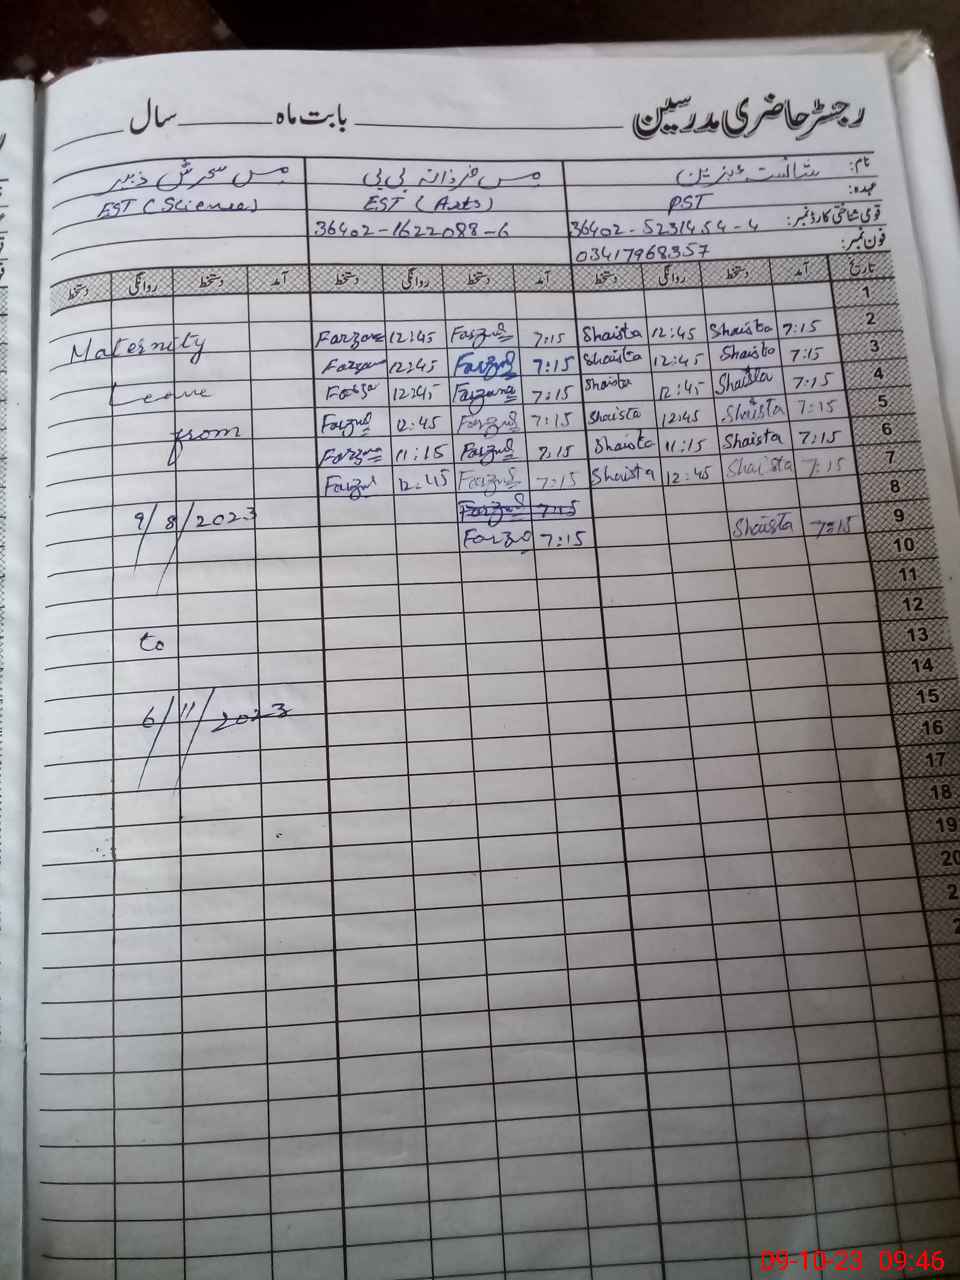 رجسٹر حاضری مدرسین ـــــــ بابت ماہ ـــــــ سال ـــــــ
نام: شائستہ عنبرین مس فرزانہ بی بی مس سحرش زبیر
عہدہ: PST EST (Arts) EST (Science)
قومی شناختی کارڈ نمبر: 36402-5231454-4 36402-1622088-6
فون نمبر: 03417968357
تاریخ آمد دستخط روانگی دستخط آمد دستخط روانگی دستخط آمد دستخط روانگی دستخط
1
2 7:15 Shaista 12:45 Shaista 7:15 Farzana 12:45 Farzana
3 7:15 Shaista 12:45 Shaista 7:15 Farzana 12:45 Farzana
4 7:15 Shaista 12:45 Shaista 7:15 Farzana 12:45 Farzana
5 7:15 Shaista 12:45 Shaista 7:15 Farzana 12:45 Farzana
6 7:15 Shaista 11:15 Shaista 7:15 Farzana 11:15 Farzana
7 7:15 Shaista 12:45 Shaista 7:15 Farzana 12:45 Farzana
8 7:15
9 7:15 Shaista 7:15 Farzana
10
11
12
13
14
15
16
17
18
19
20
2
2
Maternity
Leave
from
9/8/2023
to
6/11/2023
09-10-23 09:46